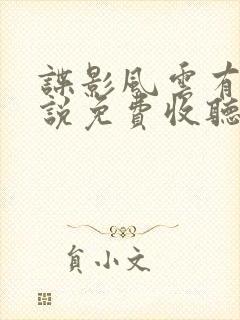 諜影風雲有
說免費收聽
員小文